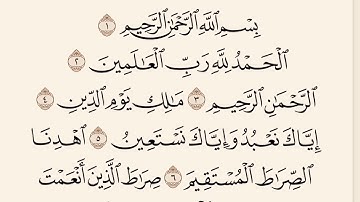 بِسْمِ ٱللَّهِ ٱلرَّحْمَٰنِ ٱلرَّحِيمِ ١
ٱلْحَمْدُ لِلَّهِ رَبِّ ٱلْعَٰلَمِينَ ٢
ٱلرَّحْمَٰنِ ٱلرَّحِيمِ ٣ مَٰلِكِ يَوْمِ ٱلدِّينِ ٤
إِيَّاكَ نَعْبُدُ وَإِيَّاكَ نَسْتَعِينُ ٥ ٱهْدِنَا
ٱلصِّرَٰطَ ٱلْمُسْتَقِيمَ ٦ صِرَٰطَ ٱلَّذِينَ أَنْعَمْتَ